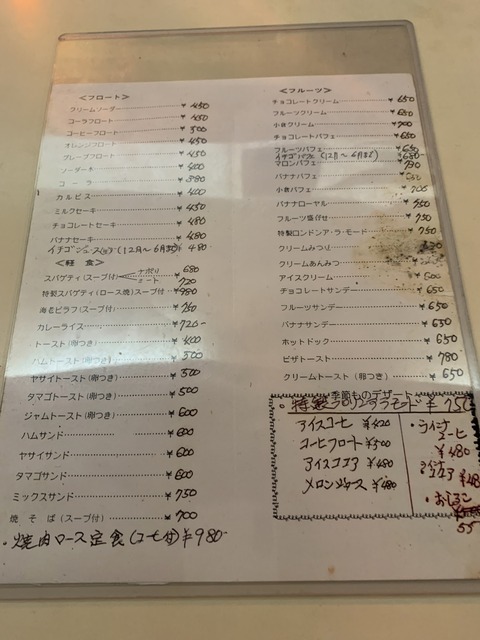 <フロート>
クリームソーダー ¥450
コーラフロート ¥450
コーヒーフロート ¥500
オレンジフロート ¥450
グレープフロート ¥450
ソーダー水 ¥400
コーラ ¥380
カルピス ¥400
ミルクセーキ ¥450
チョコレートセーキ ¥480
バナナセーキ ¥480
(12月〜6月まで) ¥480
<軽食>
スパゲティ(スープ付) ナポリ ミート ¥680 720
特製スパゲティ(ロース焼)スープ付 ¥980
海老ピラフ(スープ付) ¥750
カレーライス ¥720
トースト(卵つき) ¥400
ハムトースト(卵つき) ¥500
ヤサイトースト(卵つき) ¥500
タマゴトースト(卵つき) ¥500
ジャムトースト(卵つき) ¥600
ハムサンド ¥600
ヤサイサンド ¥600
タマゴサンド ¥600
ミックスサンド ¥750
焼そば(スープ付) ¥700
・焼肉ロース定食(コーヒ付)¥980-
<フルーツ>
チョコレートクリーム ¥650
フルーツクリーム ¥650
小倉クリーム ¥700
チョコレートパフェ ¥650
フルーツパフェ ¥650
イチゴパフェ(12月〜6月まで) ¥680
マロンパフェ ¥730
バナナパフェ ¥650
小倉パフェ ¥700
バナナローヤル ¥750
フルーツ盛合せ ¥750
特製ロンドンア・ラ・モード ¥750
クリームみつ
クリームあんみつ
アイスクリーム ¥600
チョコレートサンデー ¥650
フルーツサンデー ¥650
バナナサンデー ¥650
ホットドック ¥650
ピザトースト ¥780
クリームトースト(卵つき) ¥650
季節ものデザート
・特製プリンアラモード ¥750
アイスコーヒ ¥420
コーヒフロート ¥500
アイスココア ¥480
メロンジュース ¥480
・ウインナーコーヒ
¥480
ココア ¥480
・おしるこ
55